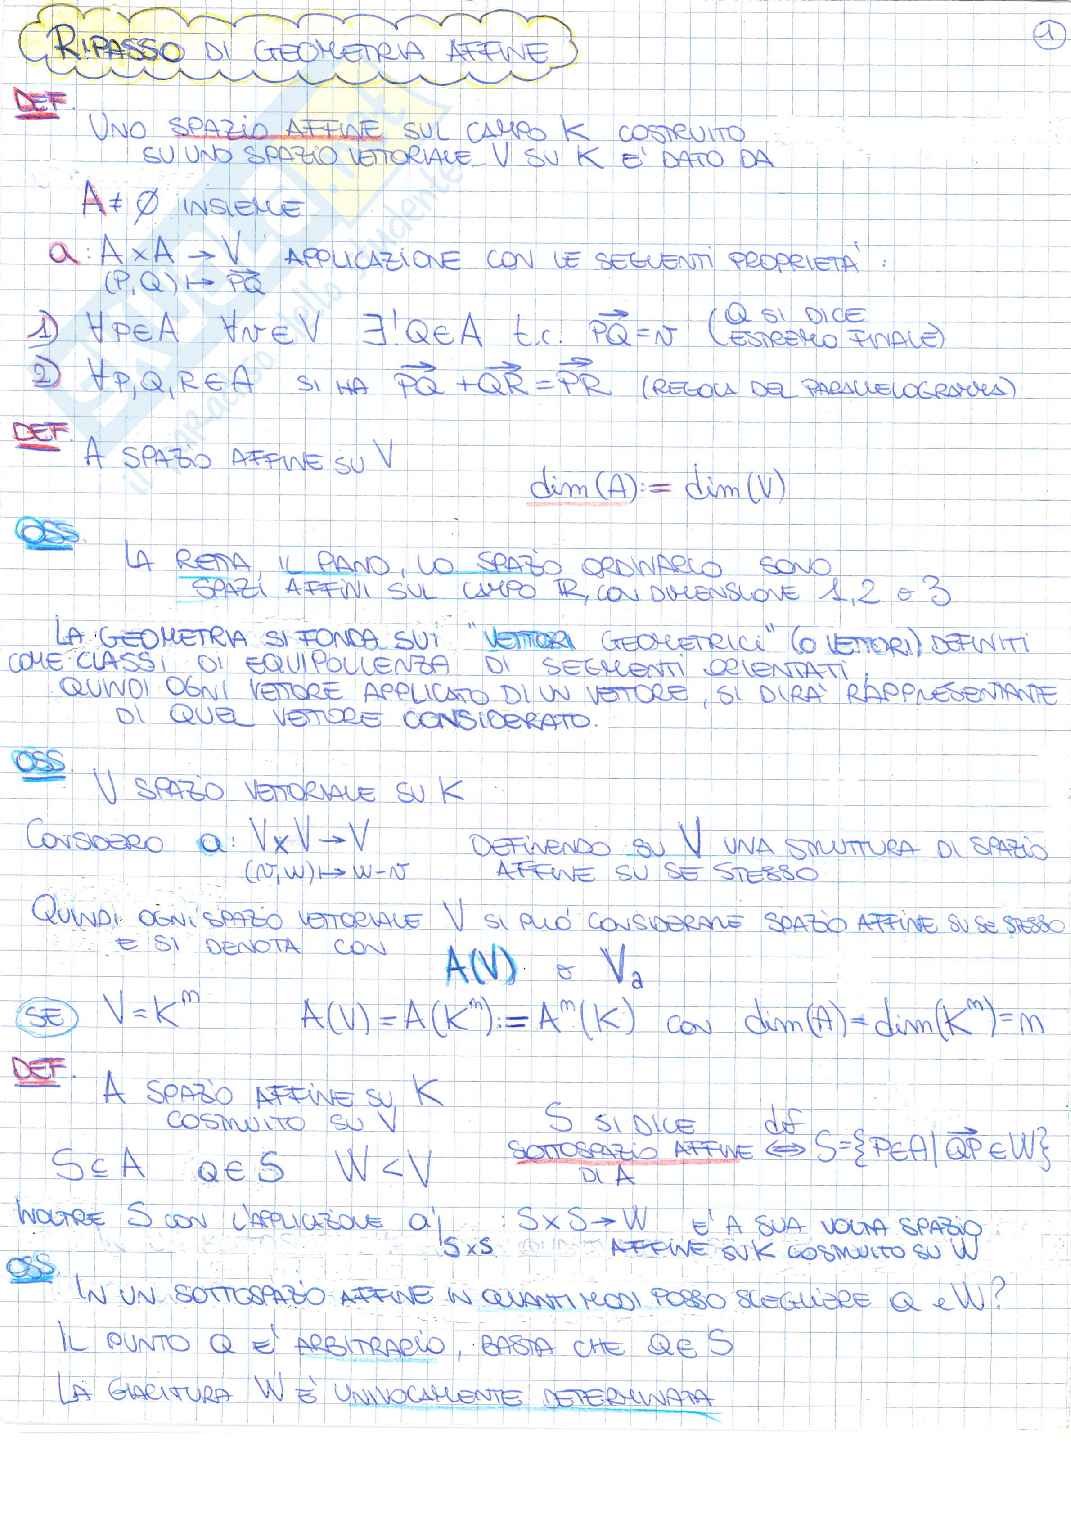 1
RIPASSO DI GEOMETRIA AFFINE
DEF.
UNO SPAZIO AFFINE SUL CAMPO K COSTRUITO
SU UNO SPAZIO VETTORIALE V SU K E' DATO DA
A ≠ ∅ INSIEME
a: A×A → V APPLICAZIONE CON LE SEGUENTI PROPRIETA':
(P,Q) ↦ PQ⃗
1) ∀P∈A ∀v∈V ∃!Q∈A t.c. PQ⃗=v (Q SI DICE
ESTREMO FINALE)
2) ∀P,Q,R∈A SI HA PQ⃗+QR⃗=PR⃗ (REGOLA DEL PARALLELOGRAMMA)
DEF.
A SPAZIO AFFINE SU V
dim(A):= dim(V)
OSS.
LA RETTA, IL PIANO, LO SPAZIO ORDINARIO SONO
SPAZI AFFINI SUL CAMPO ℝ, CON DIMENSIONE 1,2 o 3
LA GEOMETRIA SI FONDA SUI "VETTORI GEOMETRICI" (O VETTORI) DEFINITI
COME CLASSI DI EQUIPOLLENZA DI SEGMENTI ORIENTATI,
QUINDI OGNI VETTORE APPLICATO DI UN VETTORE, SI DIRA' RAPPRESENTANTE
DI QUEL VETTORE CONSIDERATO.
OSS.
V SPAZIO VETTORIALE SU K
CONSIDERO a: V×V → V DEFINENDO SU V UNA STRUTTURA DI SPAZIO
(v,w) ↦ w-v AFFINE SU SE STESSO
QUINDI OGNI SPAZIO VETTORIALE V SI PUO' CONSIDERARE SPAZIO AFFINE SU SE STESSO
E SI DENOTA CON
A(V) o Vₐ
SE V=Kᵐ A(V)=A(Kᵐ):=Aᵐ(K) con dim(A)=dim(Kᵐ)=m
DEF.
A SPAZIO AFFINE SU K
COSTRUITO SU V
S⊆A Q∈S W<V
S SI DICE def
SOTTOSPAZIO AFFINE ⟺ S={P∈A | QP⃗∈W}
DI A
INOLTRE S CON L'APPLICAZIONE a|S×S : S×S → W E' A SUA VOLTA SPAZIO
AFFINE SU K COSTRUITO SU W
OSS.
IN UN SOTTOSPAZIO AFFINE IN QUANTI MODI POSSO SCEGLIERE Q e W?
IL PUNTO Q E' ARBITRARIO, BASTA CHE Q∈S
LA GIACITURA W E' UNIVOCAMENTE DETERMINATA